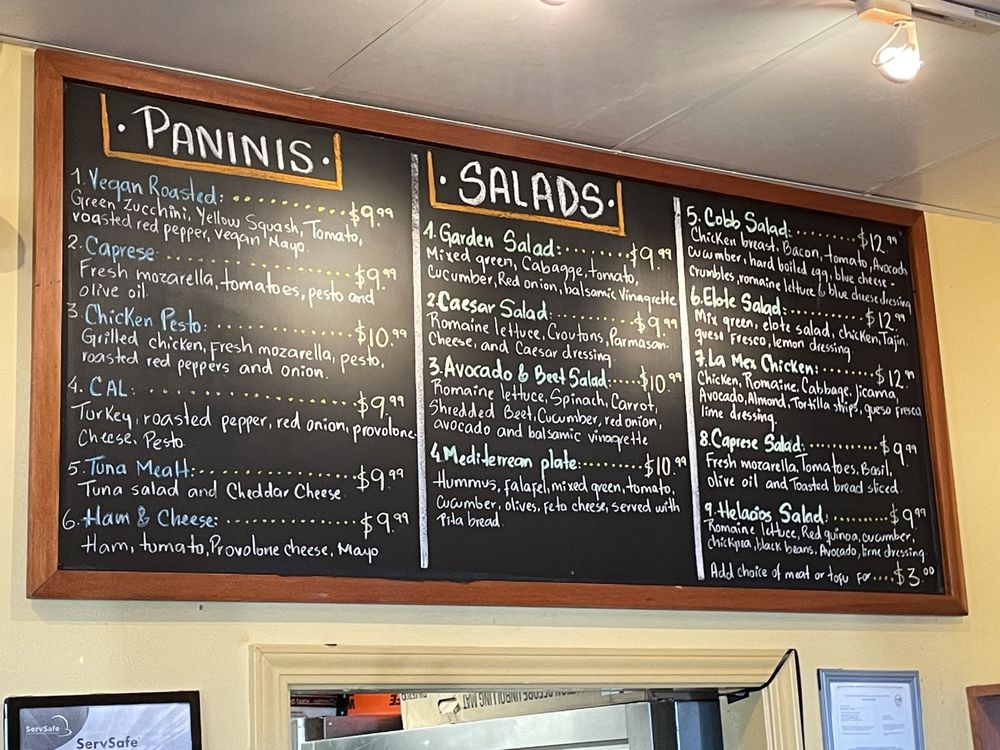 · PANINIS ·
1. Vegan Roasted: $9.99
Green Zucchini, Yellow Squash, Tomato,
roasted red pepper, vegan Mayo.
2. Caprese: $9.99
Fresh mozarella, tomatoes, pesto and
olive oil.
3. Chicken Pesto: $10.99
Grilled chicken, Fresh mozarella, pesto,
roasted red peppers and onion.
4. CAL: $9.99
Turkey, roasted pepper, red onion, provolone
Cheese, Pesto
5. Tuna Mealt: $9.99
Tuna salad and Cheddar Cheese
6. Ham & Cheese: $9.99
Ham, tomato, Provolone cheese, Mayo
· SALADS ·
1. Garden Salad: $9.99
Mixed green, Cabagge, tomato,
cucumber, Red onion, balsamic Vinagrette
2. Caesar Salad: $9.99
Romaine lettuce, Croutons, Parmasan
Cheese, and Caesar dressing.
3. Avocado & Beet Salad: $10.99
Romaine lettuce, Spinach, Carrot,
Shredded Beet, Cucumber, red onion,
avocado and balsamic vinagrette
4. Mediterrean plate: $10.99
Hummus, falafel, mixed green, tomato,
cucumber, olives, Feta cheese, served with
Pita bread
5. Cobb Salad: $12.99
Chicken breast, Bacon, tomato, Avocado
cucumber, hard boiled egg, blue cheese -
crumbles, romaine lettuce & blue cheese dressing
6. Elote Salad: $12.99
Mix green, elote salad, chicken, Tajin,
queso Fresco, lemon dressing
7. La Mex Chicken: $12.99
Chicken, Romaine, Cabbage, Jicama,
Avocado, Almond, Tortilla ships, queso Fresco
lime dressing.
8. Caprese Salad: $9.99
Fresh mozarella, Tomatoes, Basil,
olive oil and Toasted bread sliced.
9. Helacios Salad: $9.99
Romaine lettuce, Red quinoa, cucumber,
chickpea, black beans, Avocado, lime dressing.
Add choice of meat or tofu For.... $3.00
BEFORE UNROLLING MAT
ServSafe
ServSafe